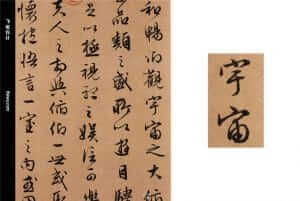 和暢仰觀宇宙之大俯
品類之盛所以遊目騁
足以極視聽之娛信可樂
夫人之相與俯仰一世或取
懷抱悟言一室之內或因
宇宙